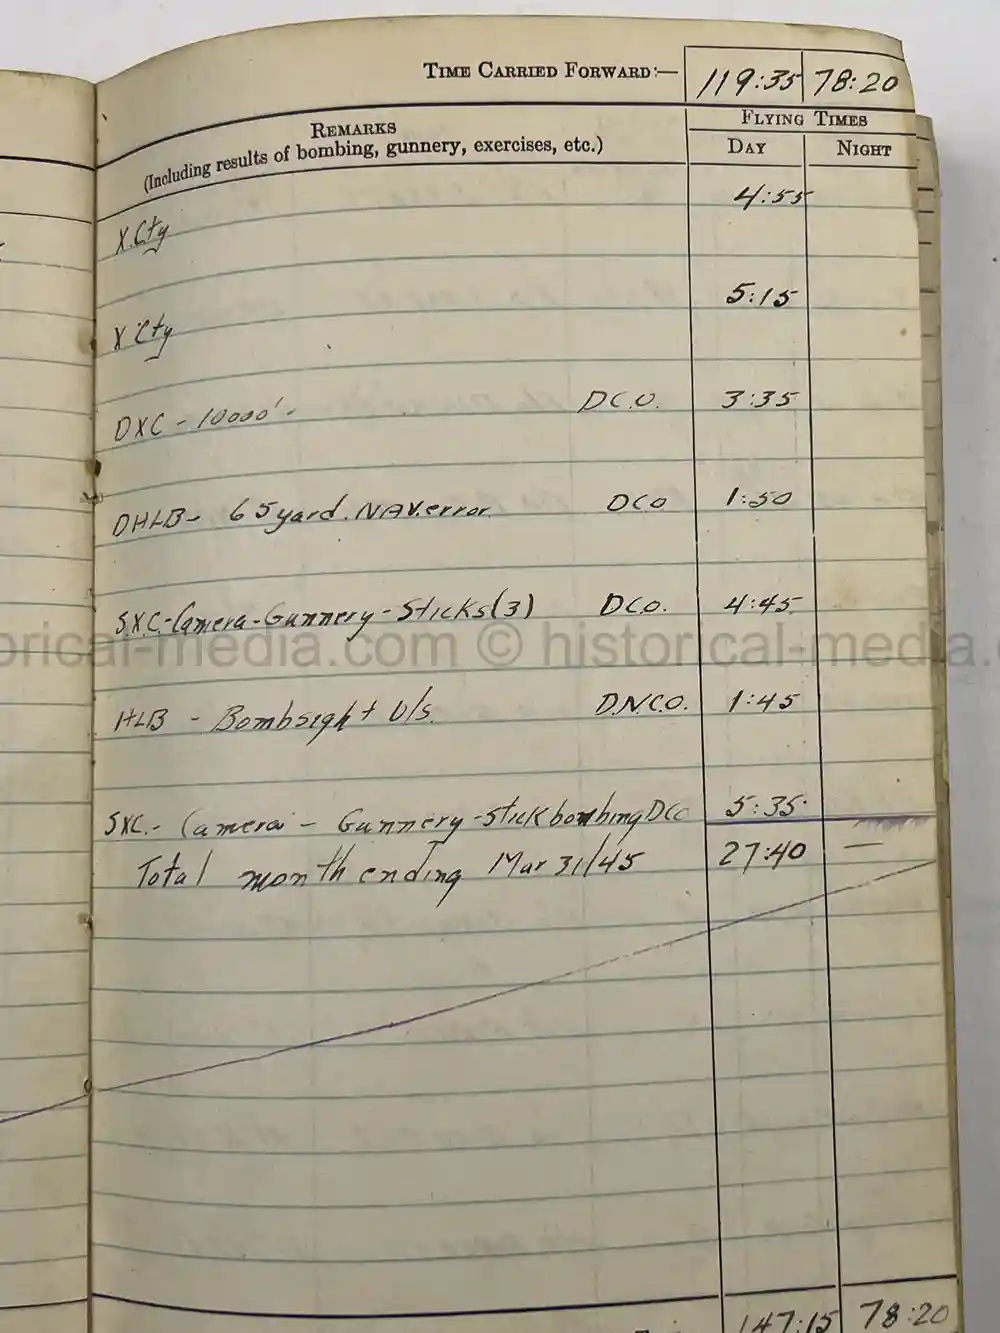 TIME CARRIED FORWARD:— 119:35 78:20
REMARKS FLYING TIMES
(Including results of bombing, gunnery, exercises, etc.) DAY NIGHT
4:55
X.Cty
5:15
X Cty
DXC - 10000' - D.C.O. 3:35
DHLB - 65 yard. NAV. error. DCO 1:50
S.X.C.-Camera-Gunnery-Sticks(3) D.C.O. 4:45
orical-media.com © historical-media.
HLB - Bombsight U/S. D.N.C.O. 1:45
SXC.- Camera - Gunnery - Stick bombing DCO 5:35
Total month ending Mar 31/45 27:40 —
147:15 78:20